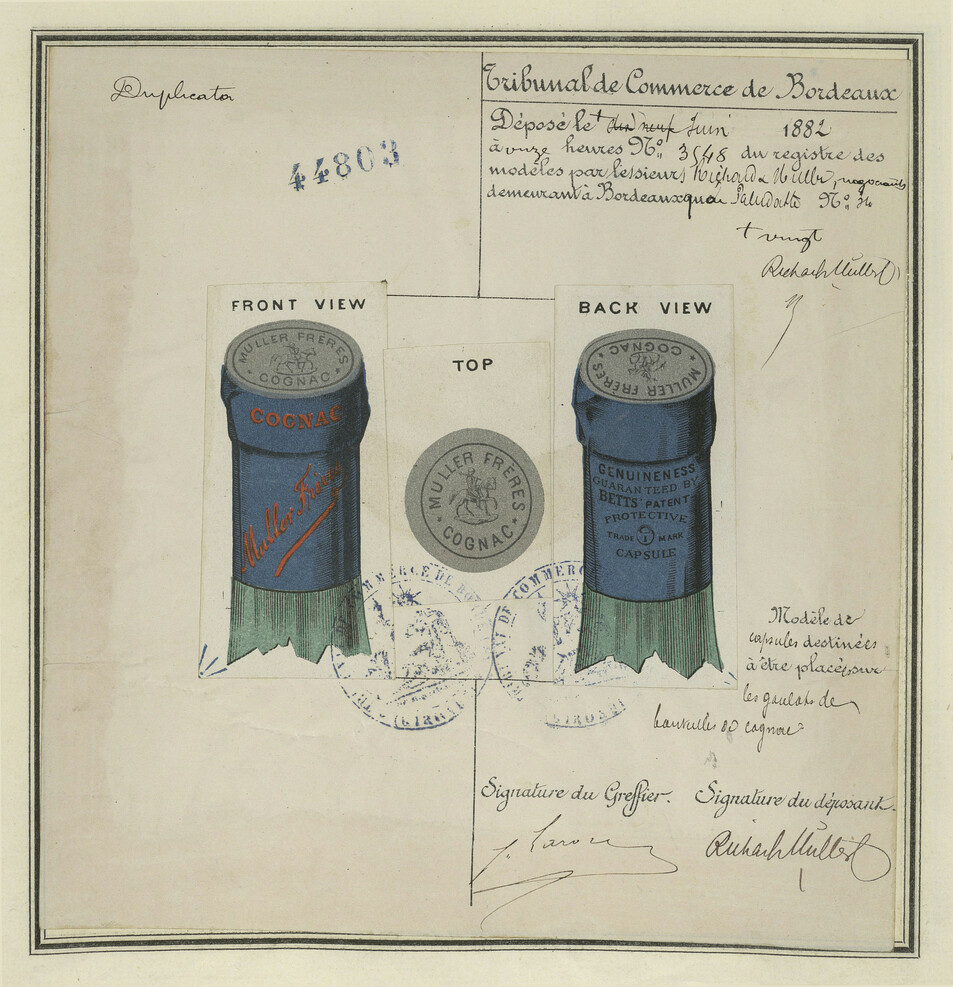 Duplicata
44803
Tribunal de Commerce de Bordeaux
Déposé le + dix neuf Juin 1882
à onze heures No. 3548 du registre des
modèles par Messieurs Richard & Muller, négociants
demeurant à Bordeaux quai Paludate No.
+ vingt
Richard & Muller
FRONT VIEW
MULLER FRÈRES
COGNAC
COGNAC
Muller Frères
TOP
MULLER FRÈRES
COGNAC
BACK VIEW
MULLER FRÈRES
COGNAC
GENUINENESS
GUARANTEED BY
BETTS' PATENT
PROTECTIVE
TRADE MARK
CAPSULE
COMMERCE DE BO
(GIRONDE
TRIBUNAL DE COMMERC
GIRONDE
Modèle de
capsules destinées
à être placées sur
les goulots de
bouteilles de cognac
Signature du Greffier. Signature du déposant.
Richard & Muller